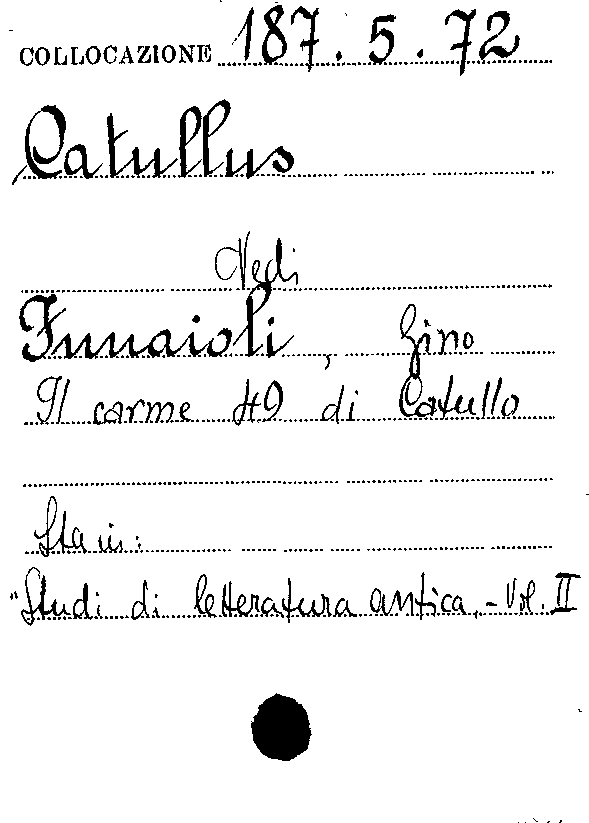 COLLOCAZIONE 187.5.72
Catullus
Vedi
Funaioli, Gino
Il carme 49 di Catullo
Sta in:
"Studi di letteratura antica, - Vol. II